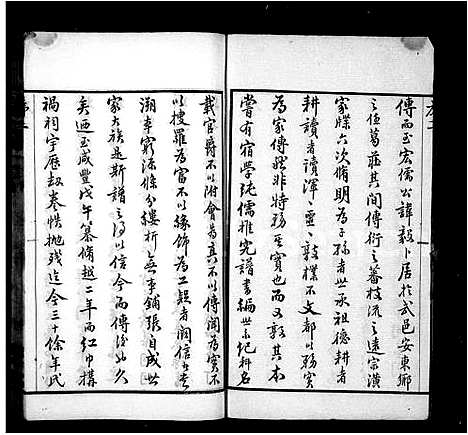 傳而至宏儒公諱毅卜居於武邑安東鄉
之伍葛莊其間傳衍之蕃枝流之遠宗潢
家牒六次脩明為子孫者世承祖德耕者
耕讀者讀渾渾噩噩敦樸不文都以務實
為家傳然非特務其實也而又敦其本
嘗有宿學純儒推究譜書編世系紀科名
載官爵不以附會為真不以傳聞為實不
以搜羅為富不以緣飾為工疑者闕信者
溯本窮源條分縷析無事鋪張自成世
家大族是斯譜之得以信今而傳後也久
矣迺至咸豐戊午纂脩越二年而紅巾構
禍祠宇歷劫卷帙拋殘迄今三十餘年氏